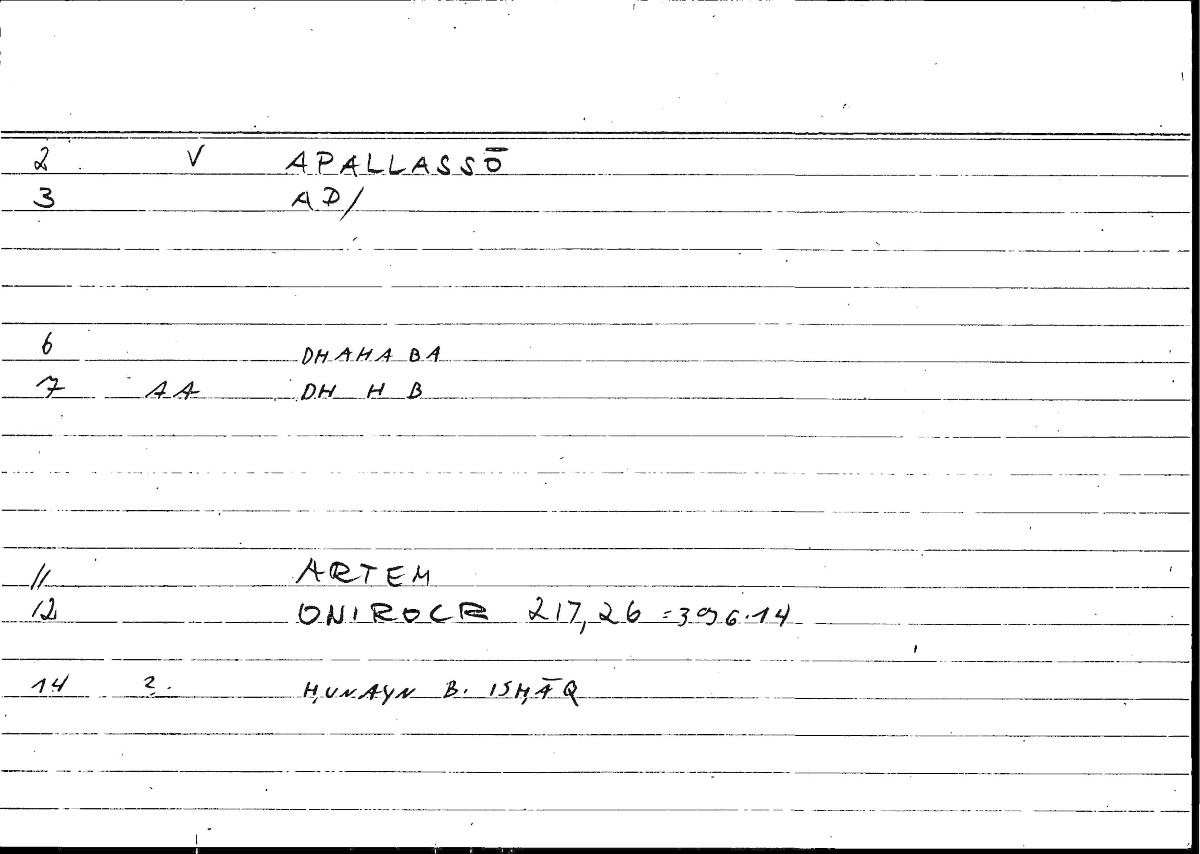 2 V APALLASSŌ
3 AD/
6 DHAHABA
7 AA DH H B
11 ARTEM
12 ONIROCR 217,26 =396.14
14 2. ḤUNAYN B. ISḤĀQ